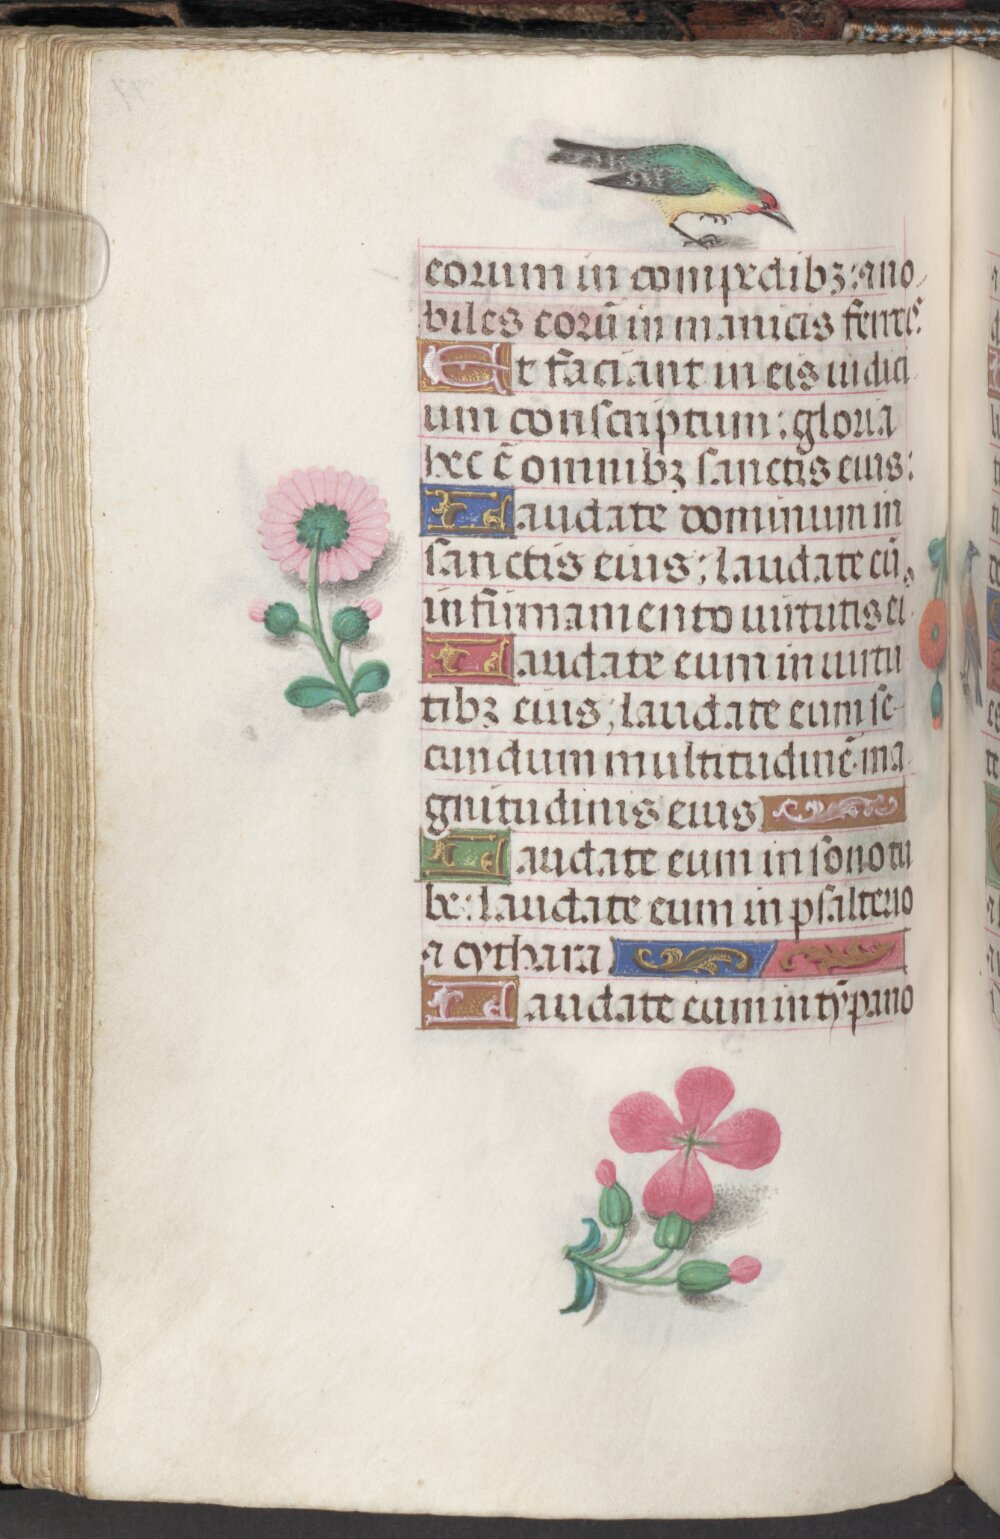 eorum in compedibꝫ: ⁊ no
biles eorū in manicis ferreꝯ.
Et faciant in eis iudici
um conscriptum: gloria
hec ē omnibꝫ sanctis eius:
Laudate dominum in
sanctis eius; laudate eū
in firmamento uirtutis eiꝰ.
Laudate eum in uirtu
tibꝫ eius; laudate eum se-
cundum multitudinē ma
gnitudinis eius
Laudate eum in sono tu
be: laudate eum in psalterio
⁊ cythara
Laudate eum in tympano